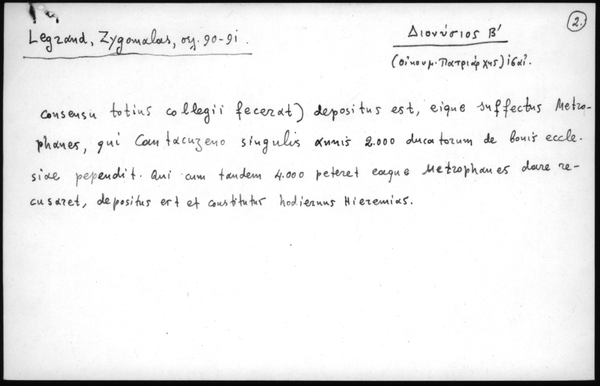 2.
Legrand, Zygomalas, σελ. 90-91.
Διονύσιος Β'
(Οἰκουμ. Πατριάρχης)
consensu totius collegii fecerat) depositus est, eique suffectus Metro-
phanes, qui Cantacuzeno singulis annis 2.000 ducatorum de bonis eccle-
siae pependit. Qui cum tandem 4.000 peteret eaque Metrophanes dare re-
cusaret, depositus est et constitutus hodiernus Hieremias.